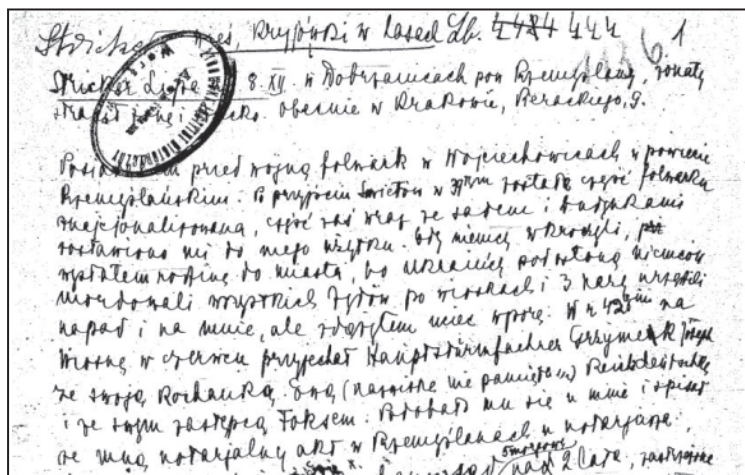 Stricker wieś, Kryjówki w lasach Lb. 4484 444
1136. 1
Stricker Lipa 8. XII. w Dobrzanicach pow Przemyślany, żonaty
stracił żonę i dziecko. obecnie w Krakowie, Berackiego, 9.
Posiadałem przed wojną folwark w Wojciechowicach w powiecie
Przemyślańskim. Po przyjściu Sowietów w 39tym została część folwarku
znacjonalizowana, część zaś wraz ze sadem i budynkami
zostawiono mi do mego użytku. Gdy niemcy wkroczyli,
wysłałem rodzinę do miasta, bo ukraińcy pod osłoną niemców
mordowali wszystkich żydów po wioskach i 3 razy urządzili
napad i na mnie, ale zdążyłem uciec w porę. W r 42gim na
wiosnę w czerwcu przyjechał Hauptsturmfuehrer Grzymek Josef
ze swoją kochanką Ewą (nazwiska nie pamiętam) Reichsdeutschką
i ze swym zastępcą Foksem. Podobało mu się u mnie i spisał
ze mną notarjalny akt w Przemyślanach u notarjusza,
nad 9 lata, zastrzeżone